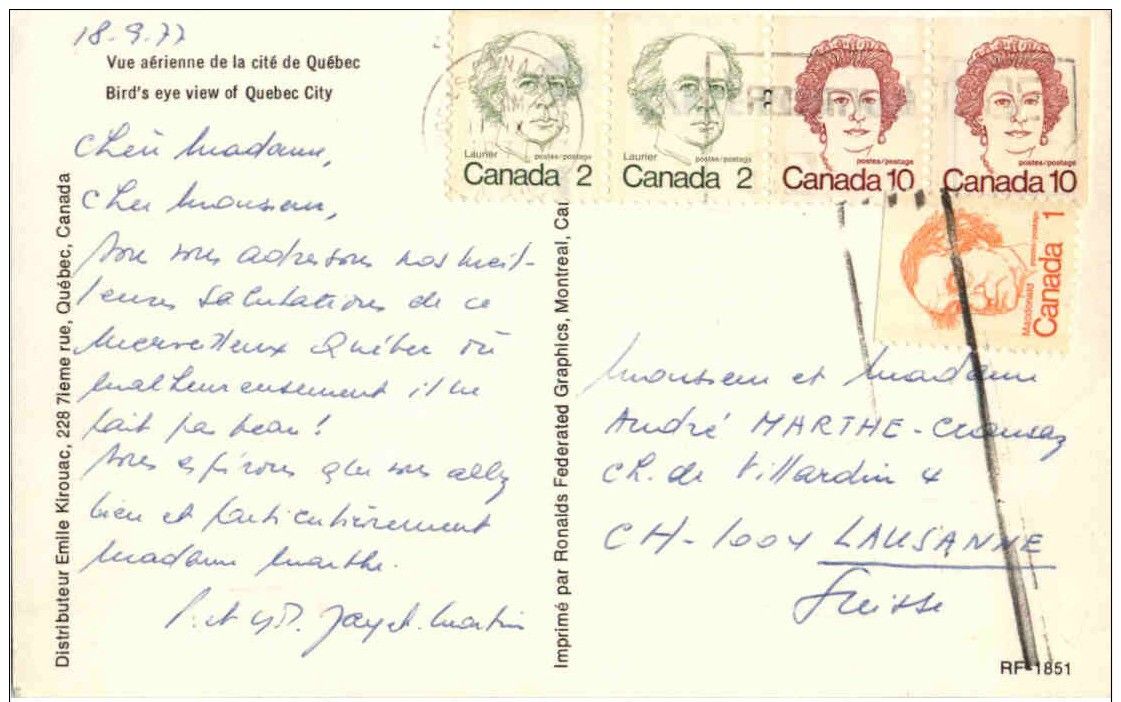 18.9.77
Vue aérienne de la cité de Québec
Bird's eye view of Quebec City
Chère Madame,
Cher Monsieur,
Nous vous adressons nos meil-
leures salutations de ce
merveilleux Québec où
malheureusement il ne
fait pas beau!
Nous espérons que vous allez
bien et particulièrement
Madame Marthe.
P. et Jayet-Martin
Distributeur Emile Kirouac, 228 7ieme rue, Québec, Canada
Imprimé par Ronalds Federated Graphics, Montreal, Can
Laurier
postes/postage
Canada 2
Laurier
postes/postage
Canada 2
postes/postage
Canada 10
postes/postage
Canada 10
Macdonald postes/postage
Canada 1
Monsieur et Madame
André MARTHE-Crousaz
ch. de Villardin 4
CH-1004 LAUSANNE
Suisse
RF-1851